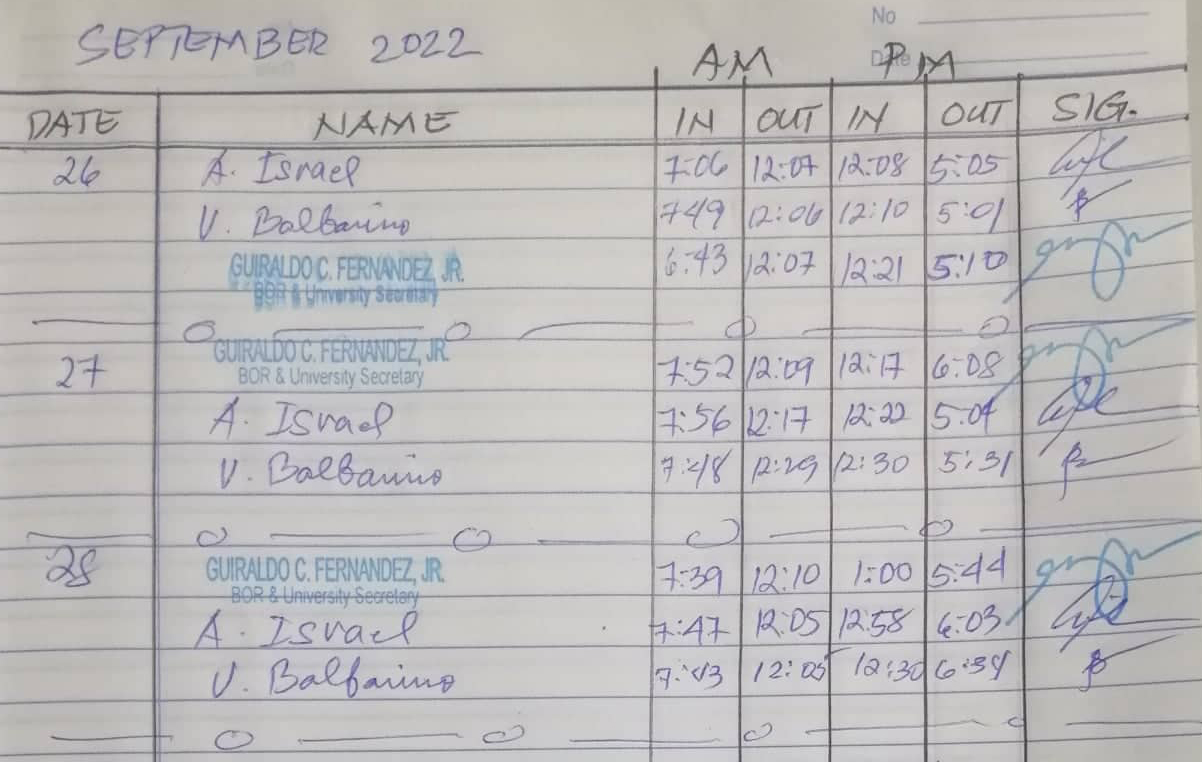 No
SEPTEMBER 2022
Date
AM PM
DATE NAME IN OUT IN OUT SIG.
26 A. Israel 7:06 12:07 12:08 5:05
V. Balbarino 749 12:06 12:10 5:01
GUIRALDO C. FERNANDEZ, JR. 6:43 12:07 12:21 5:10
BOR & University Secretary
27 GUIRALDO C. FERNANDEZ, JR. 7:52 12:09 12:17 6:08
BOR & University Secretary
A. Israel 7:56 12:17 12:22 5:04
V. Balbarino 7:48 12:29 12:30 5:31
28 GUIRALDO C. FERNANDEZ, JR. 7:39 12:10 1:00 5:44
BOR & University Secretary
A. Israel 7:47 12:05 12:58 6:03
V. Balbarino 7:43 12:05 12:30 6:34